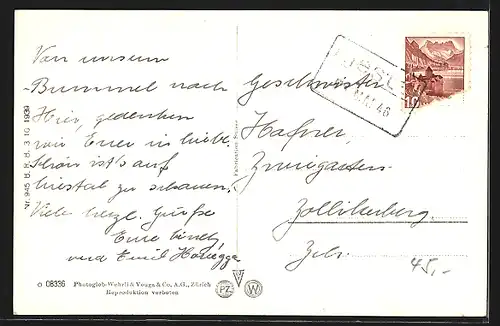 Von unserm
Bummel nach
Hier, gedenken
wir Euer in Liebe.
Schön ist's auf
zu schauen.
Viele herzl. Grüsse
Eure
und Emil Honegger
Geschwister
Hafner,
Zweigarten
Zollikerberg
Zch.
45,-
46
10
Nr. 945 B. R. B. 3 10 1939
O 08336
Photoglob-Wehrli & Vouga & Co. A.G., Zürich
Reproduktion verboten
PZ
W